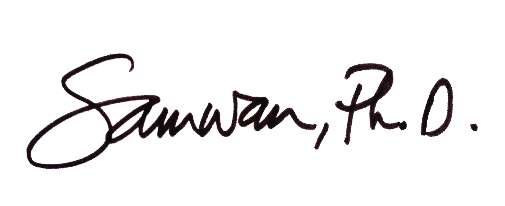 Samwan, Ph. D.